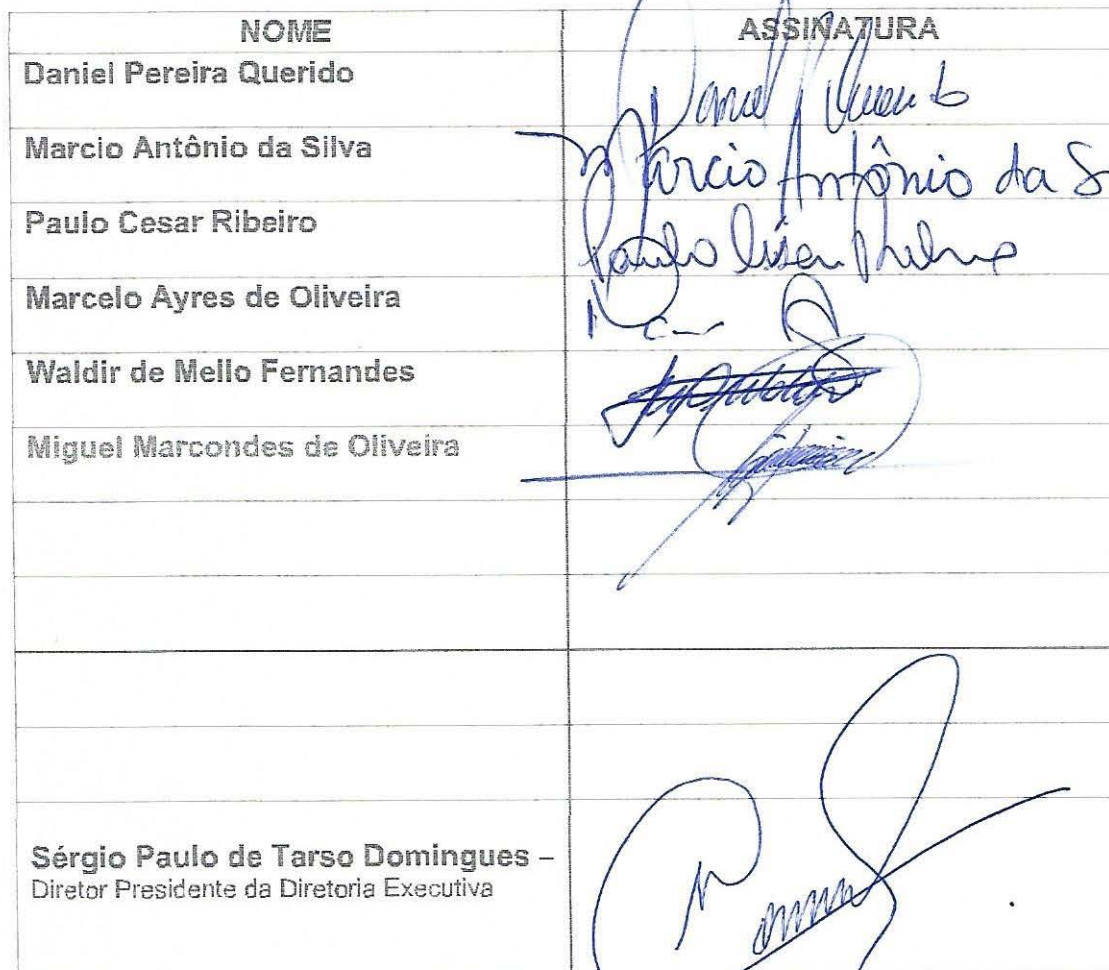 NOME ASSINATURA
Daniel Pereira Querido
Marcio Antônio da Silva Marcio Antônio da S
Paulo Cesar Ribeiro Paulo
Marcelo Ayres de Oliveira
Waldir de Mello Fernandes
Miguel Marcondes de Oliveira
Sérgio Paulo de Tarso Domingues –
Diretor Presidente da Diretoria Executiva